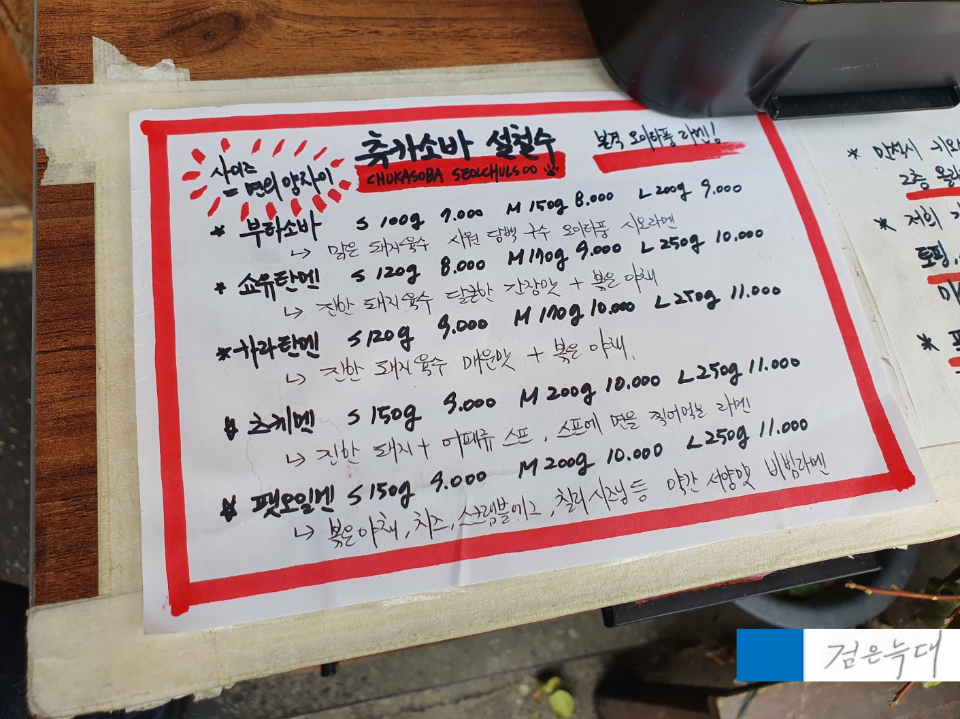 사이즈
= 면의 양차이
츄카소바 설철수
CHUKASOBA SEOLCHULSOO
본격 오미타풍 라멘!
* 부하소바 S 100g 7.000 M 150g 8.000 L 200g 9.000
↳ 맑은 돼지육수 시원 담백 국수 오미타풍 시오라멘
* 쇼유탄멘 S 120g 8.000 M 170g 9.000 L 250g 10.000
↳ 진한 돼지육수 달콘한 간장맛 + 볶은 야채
* 카라탄멘 S 120g 9.000 M 170g 10.000 L 250g 11.000
↳ 진한 돼지육수 매운맛 + 볶은 야채.
* 츠케멘 S 150g 9.000 M 200g 10.000 L 250g 11.000
↳ 진한 돼지 + 어패류 스프, 스프에 면을 찍어먹는 라멘
* 팻오일멘 S 150g 9.000 M 200g 10.000 L 250g 11.000
↳ 볶은야채, 치즈, 스크램블에그, 칠리시즈닝 등 약간 서양맛 비빔라멘
2층 올라
* 저희
토핑,
*
검은늑대